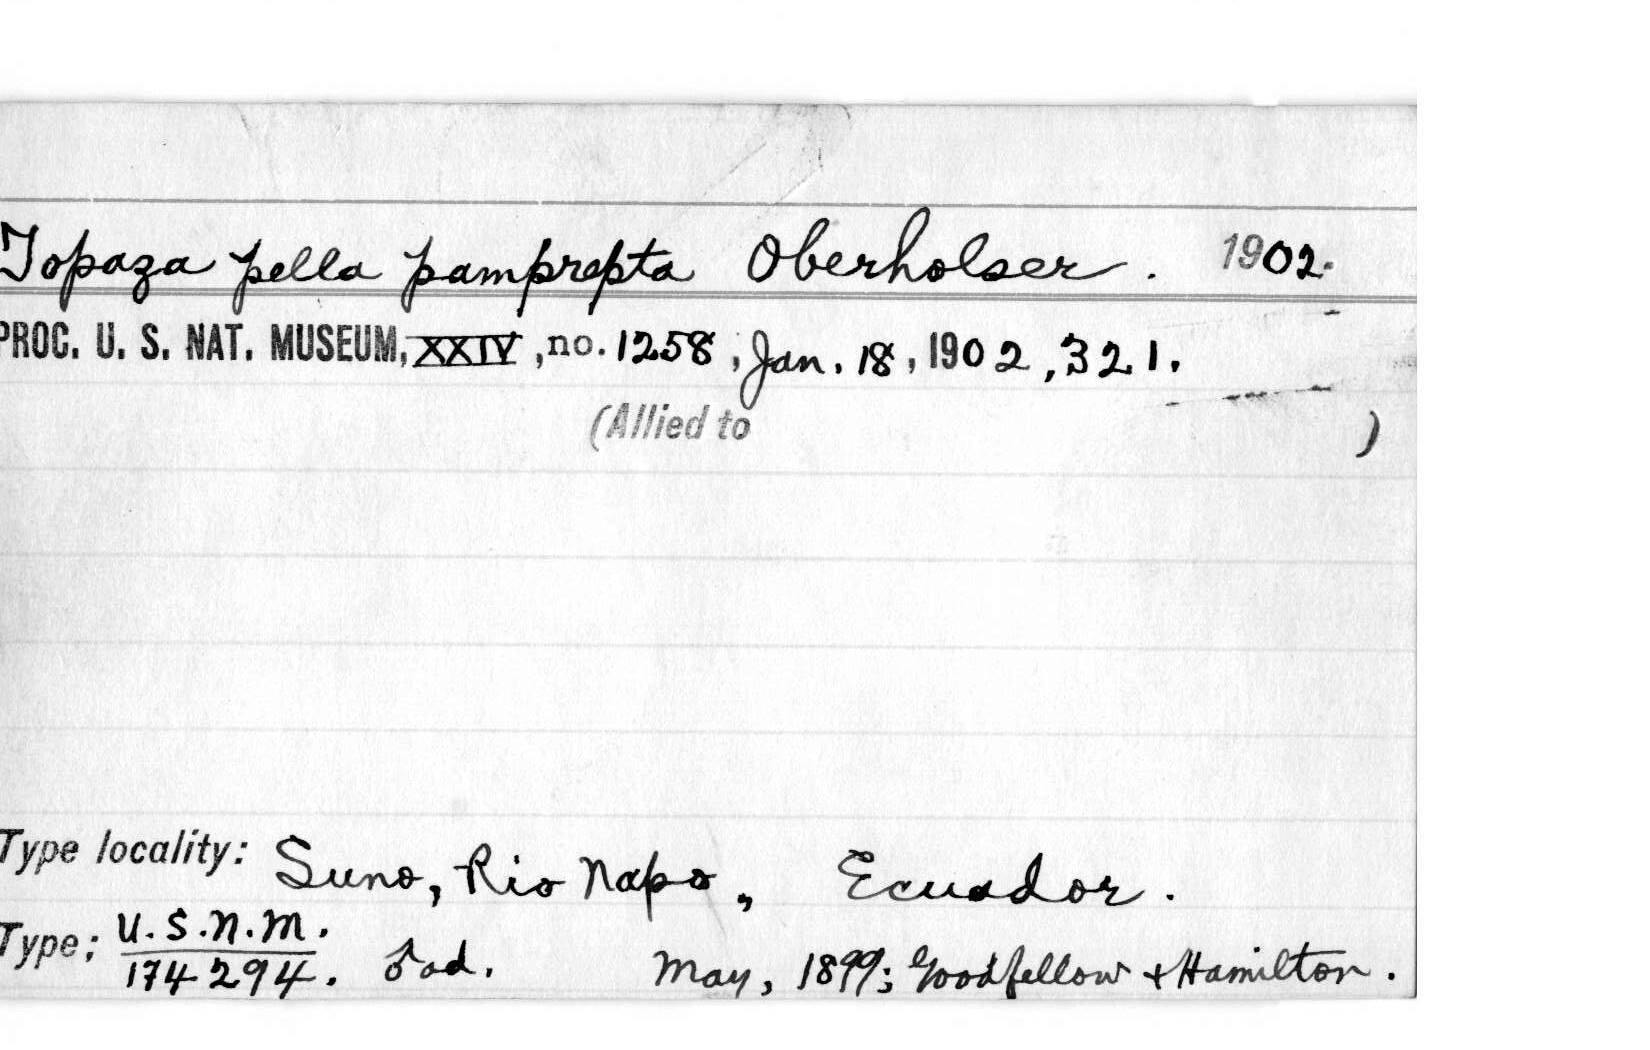 Topaza pella pamprepta Oberholser. 1902.
PROC. U. S. NAT. MUSEUM, XXIV, no. 1258, Jan. 18, 1902, 321.
(Allied to )
Type locality: Suno, Rio Napo, Ecuador.
Type: U.S.N.M. 174294. ♂ ad. May, 1899; Goodfellow + Hamilton.